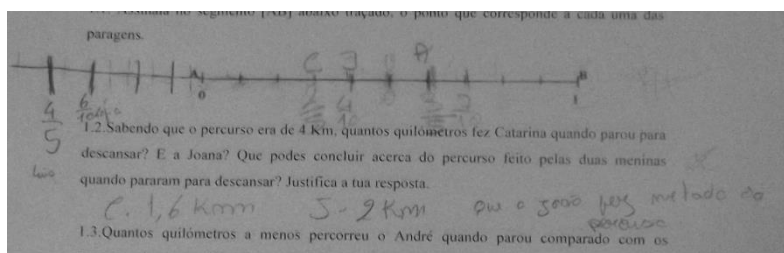 1.1. Assinala no segmento [AB] abaixo traçado, o ponto que corresponde a cada uma das
paragens.
C J A
A B
0 1
4 6 4
5 10 10
1.2.Sabendo que o percurso era de 4 Km, quantos quilómetros fez Catarina quando parou para
descansar? E a Joana? Que podes concluir acerca do percurso feito pelas duas meninas
quando pararam para descansar? Justifica a tua resposta.
C. 1,6 Kmm J - 2 Km que o João fez metade do
percurso
1.3.Quantos quilómetros a menos percorreu o André quando parou comparado com os